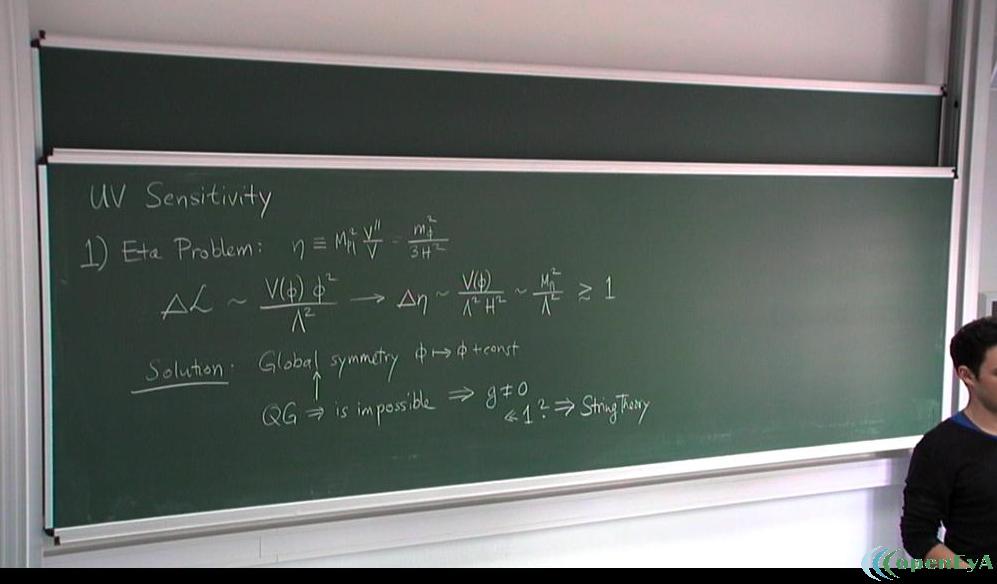 UV Sensitivity
1) Eta Problem: η ≡ M_Pl² V''/V = m_φ²/3H²
Δℒ ~ V(φ) φ²/Λ² → Δη ~ V(φ)/Λ² H² ~ M_Pl²/Λ² ≳ 1
Solution: Global symmetry φ ↦ φ + const
↑
QG ⇒ is impossible ⇒ g ≠ 0
≪ 1 ? ⇒ String Theory
openEyA